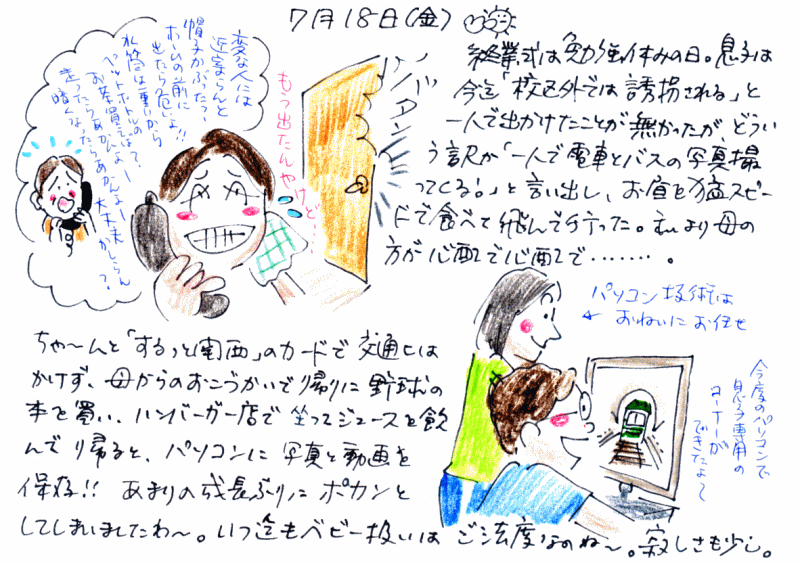 7月18日(金)
終業式は勉強休みの日。息子は
今迄「校区外では誘拐される」と
一人で出かけたことが無かったが どうい
う訳か「一人で電車とバスの写真撮
ってくる!」と言い出し、お昼を猛スピー
ドで食べて飛んで行った。私より母の
方が心配で心配で・・・・・・・・。
変な人には
近寄らんと
帽子かぶった?
ホームの前に
出たら危いよ!!
水筒は重いから
ペットボトルのは?
お茶買えばよー
走ったらあかんよー
暗くなったらあかんよー
大丈夫かしらん?
もう出たんやけど…
バタン
パソコン技術は
おねいにお任せ
今度のパソコンで
息子専用の
コーナーが
できたよ〜
ちゃ〜んと「するっと関西」のカードで 交通ヒは
かけず、母からのおこづかいで帰りに 野球の
本を買い、ハンバーガー店で 坐ってジュースを飲
んで帰ると、パソコンに 写真と動画を
保存!! あまりの成長ぶりに ポカンと
してしまいましたわ〜。いつ迄もベビー扱いは ご法度なのね〜。寂しさも少し。